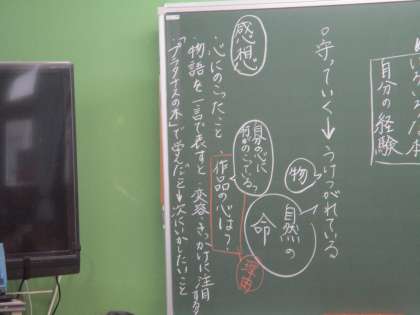 自分の経験
○守っていく→うけつがれている
物
自然の
命
感想
自分の心に
何がのこっている?
・心にのこったこと ・作品の心は?
理由
・物語を一言で表すと・変容・きっかけに注目する
・「プラタナスの木」で学んだこと 次にいかしたいこと